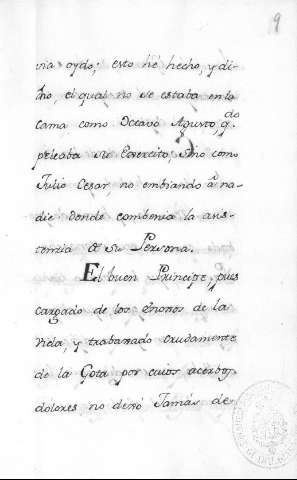 19
via oydo; esto hé hecho, y di-
cho, el qual no se estaba en la
cama como Octavo Agusto q.do
peleaba su Exercito, sino como
Julio Cesar, no embiando á na-
die donde combenia la assis-
tencia de su Persona.
El buen Principe, pues
cargado de los enonos de la
vida, y trabaxado crudamente
de la Gota por cuios acerbos
dolores no dexó Jamás de